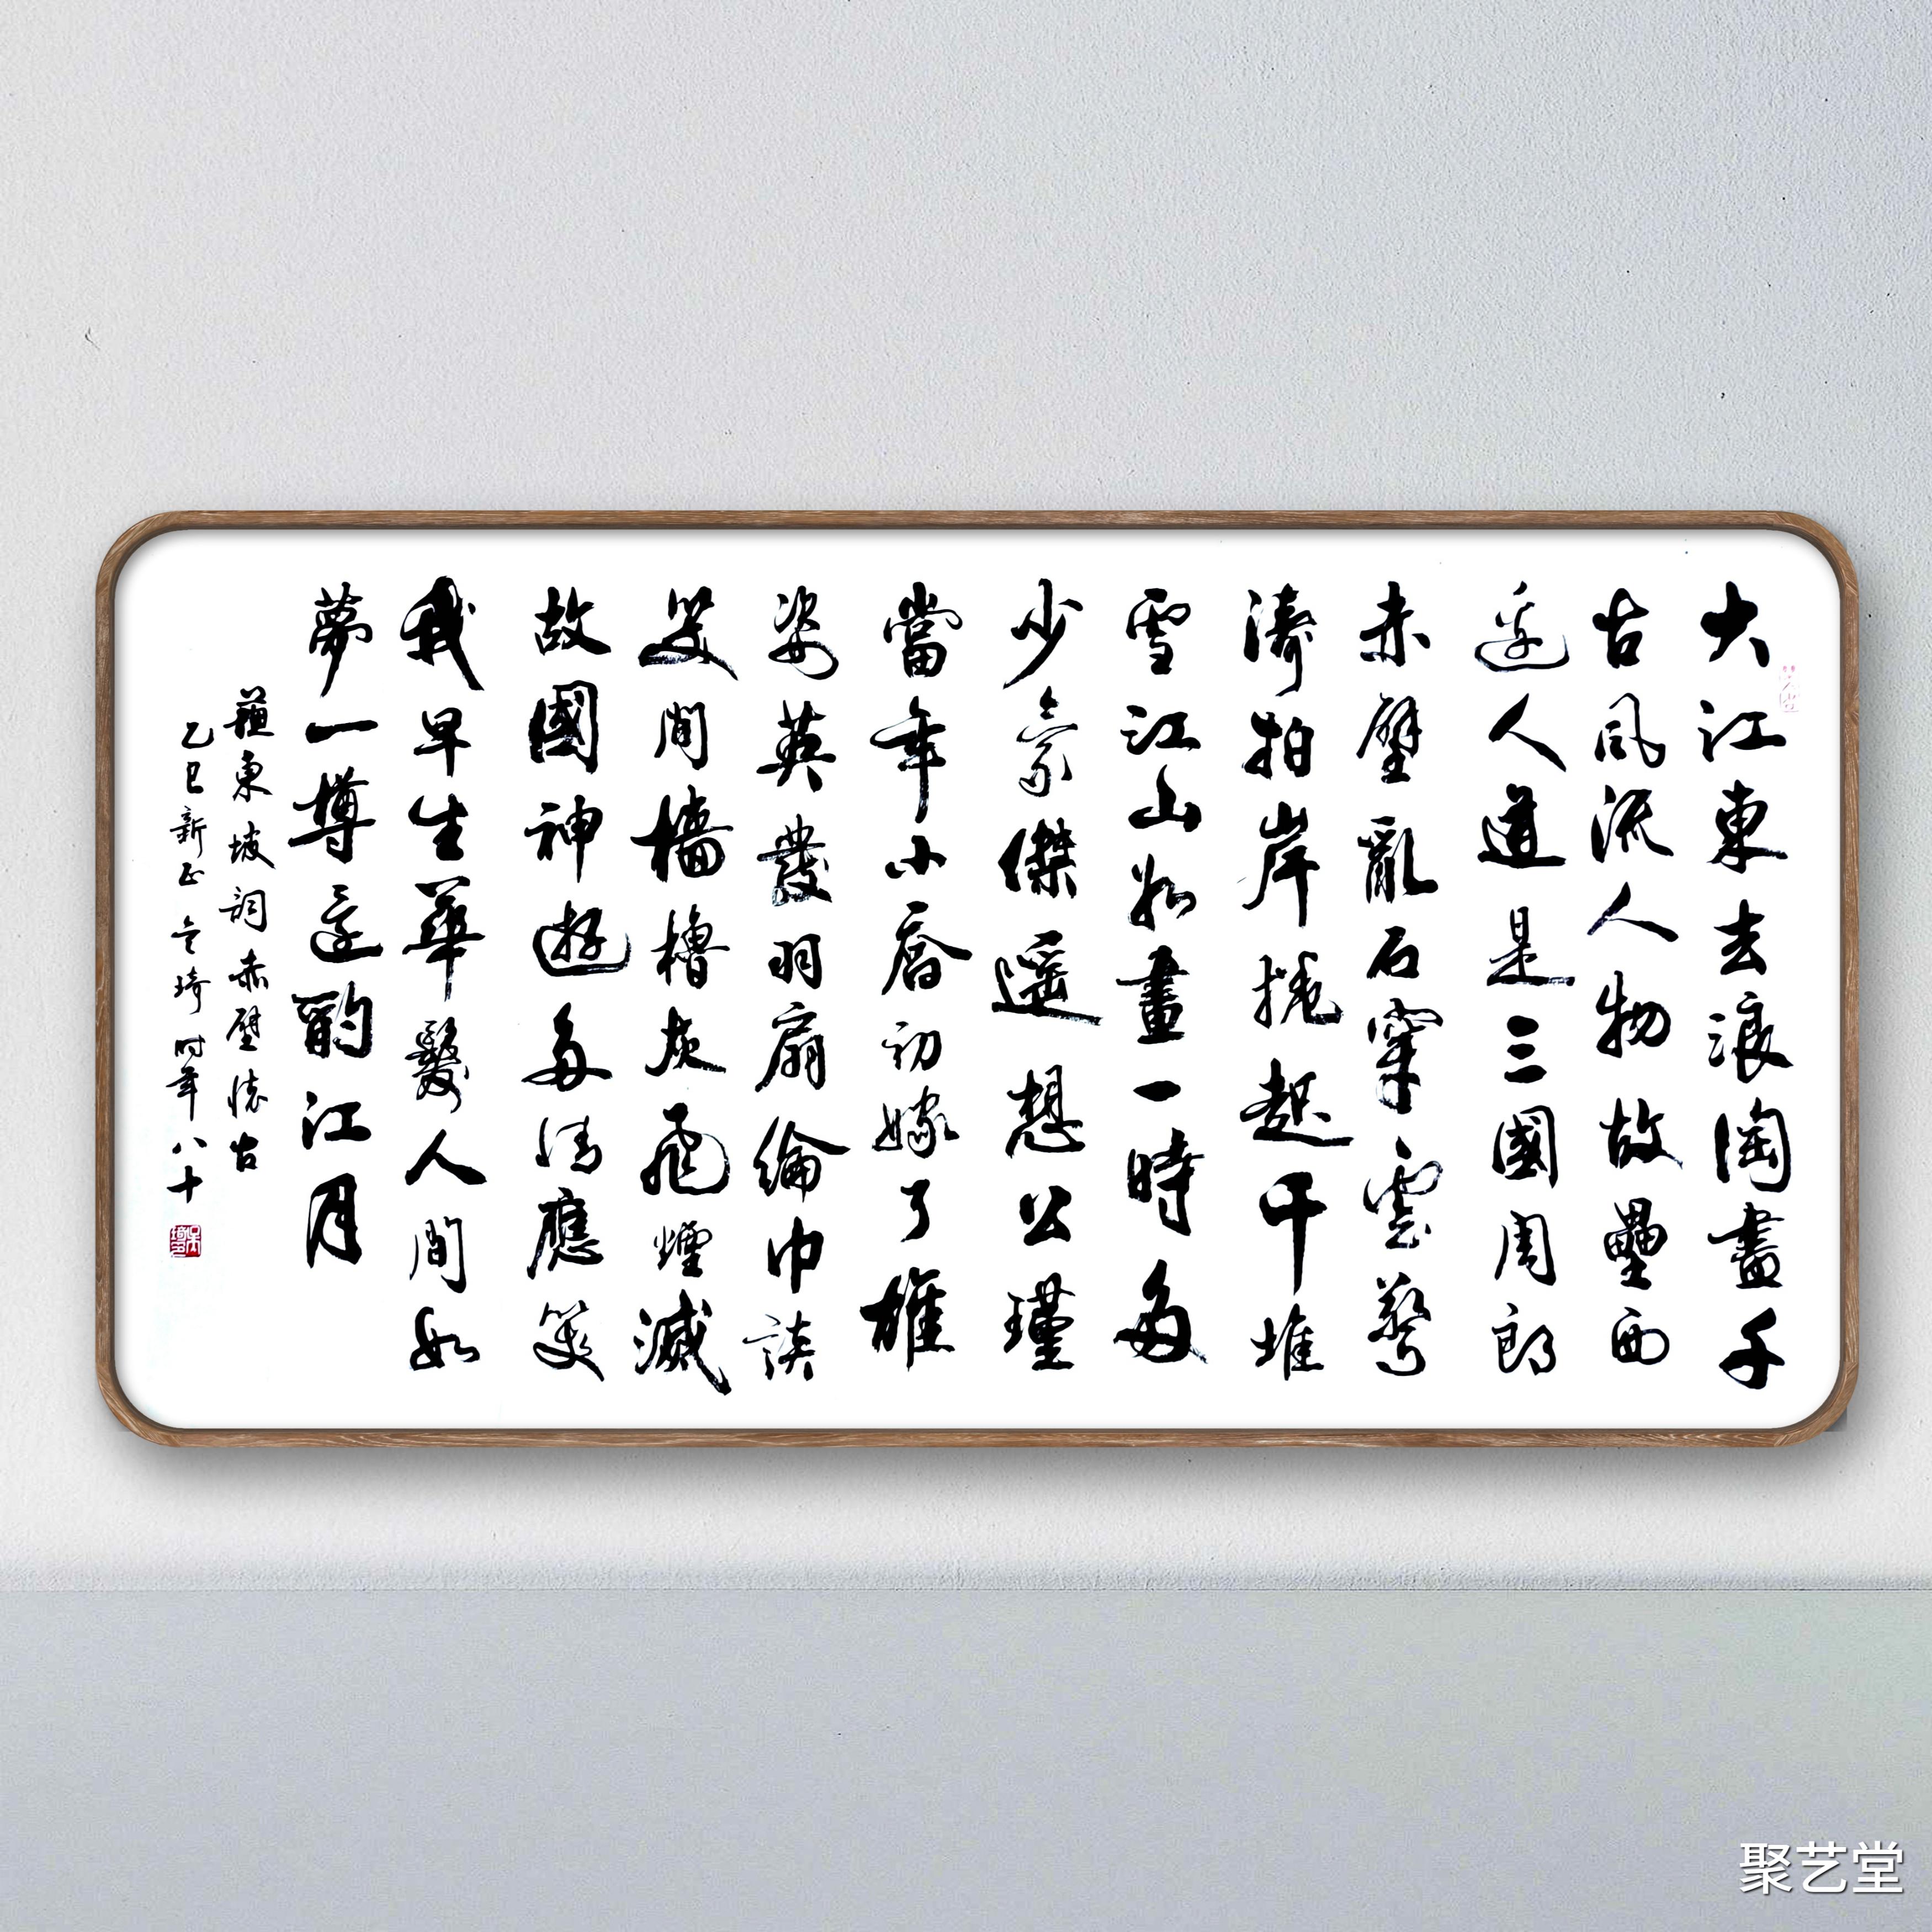 大江東去浪淘盡千
古風流人物故壘西
邊人道是三國周郎
赤壁亂石穿雲驚
濤拍岸捲起千堆
雪江山如畫一時多
少豪傑遙想公瑾
當年小喬初嫁了雄
姿英發羽扇綸巾談
笑間檣櫓灰飛煙滅
故國神遊多情應笑
我早生華髮人間如
夢一樽還酹江月
蘇東坡詞赤壁懷古
乙巳新正琦时年八十
聚艺堂